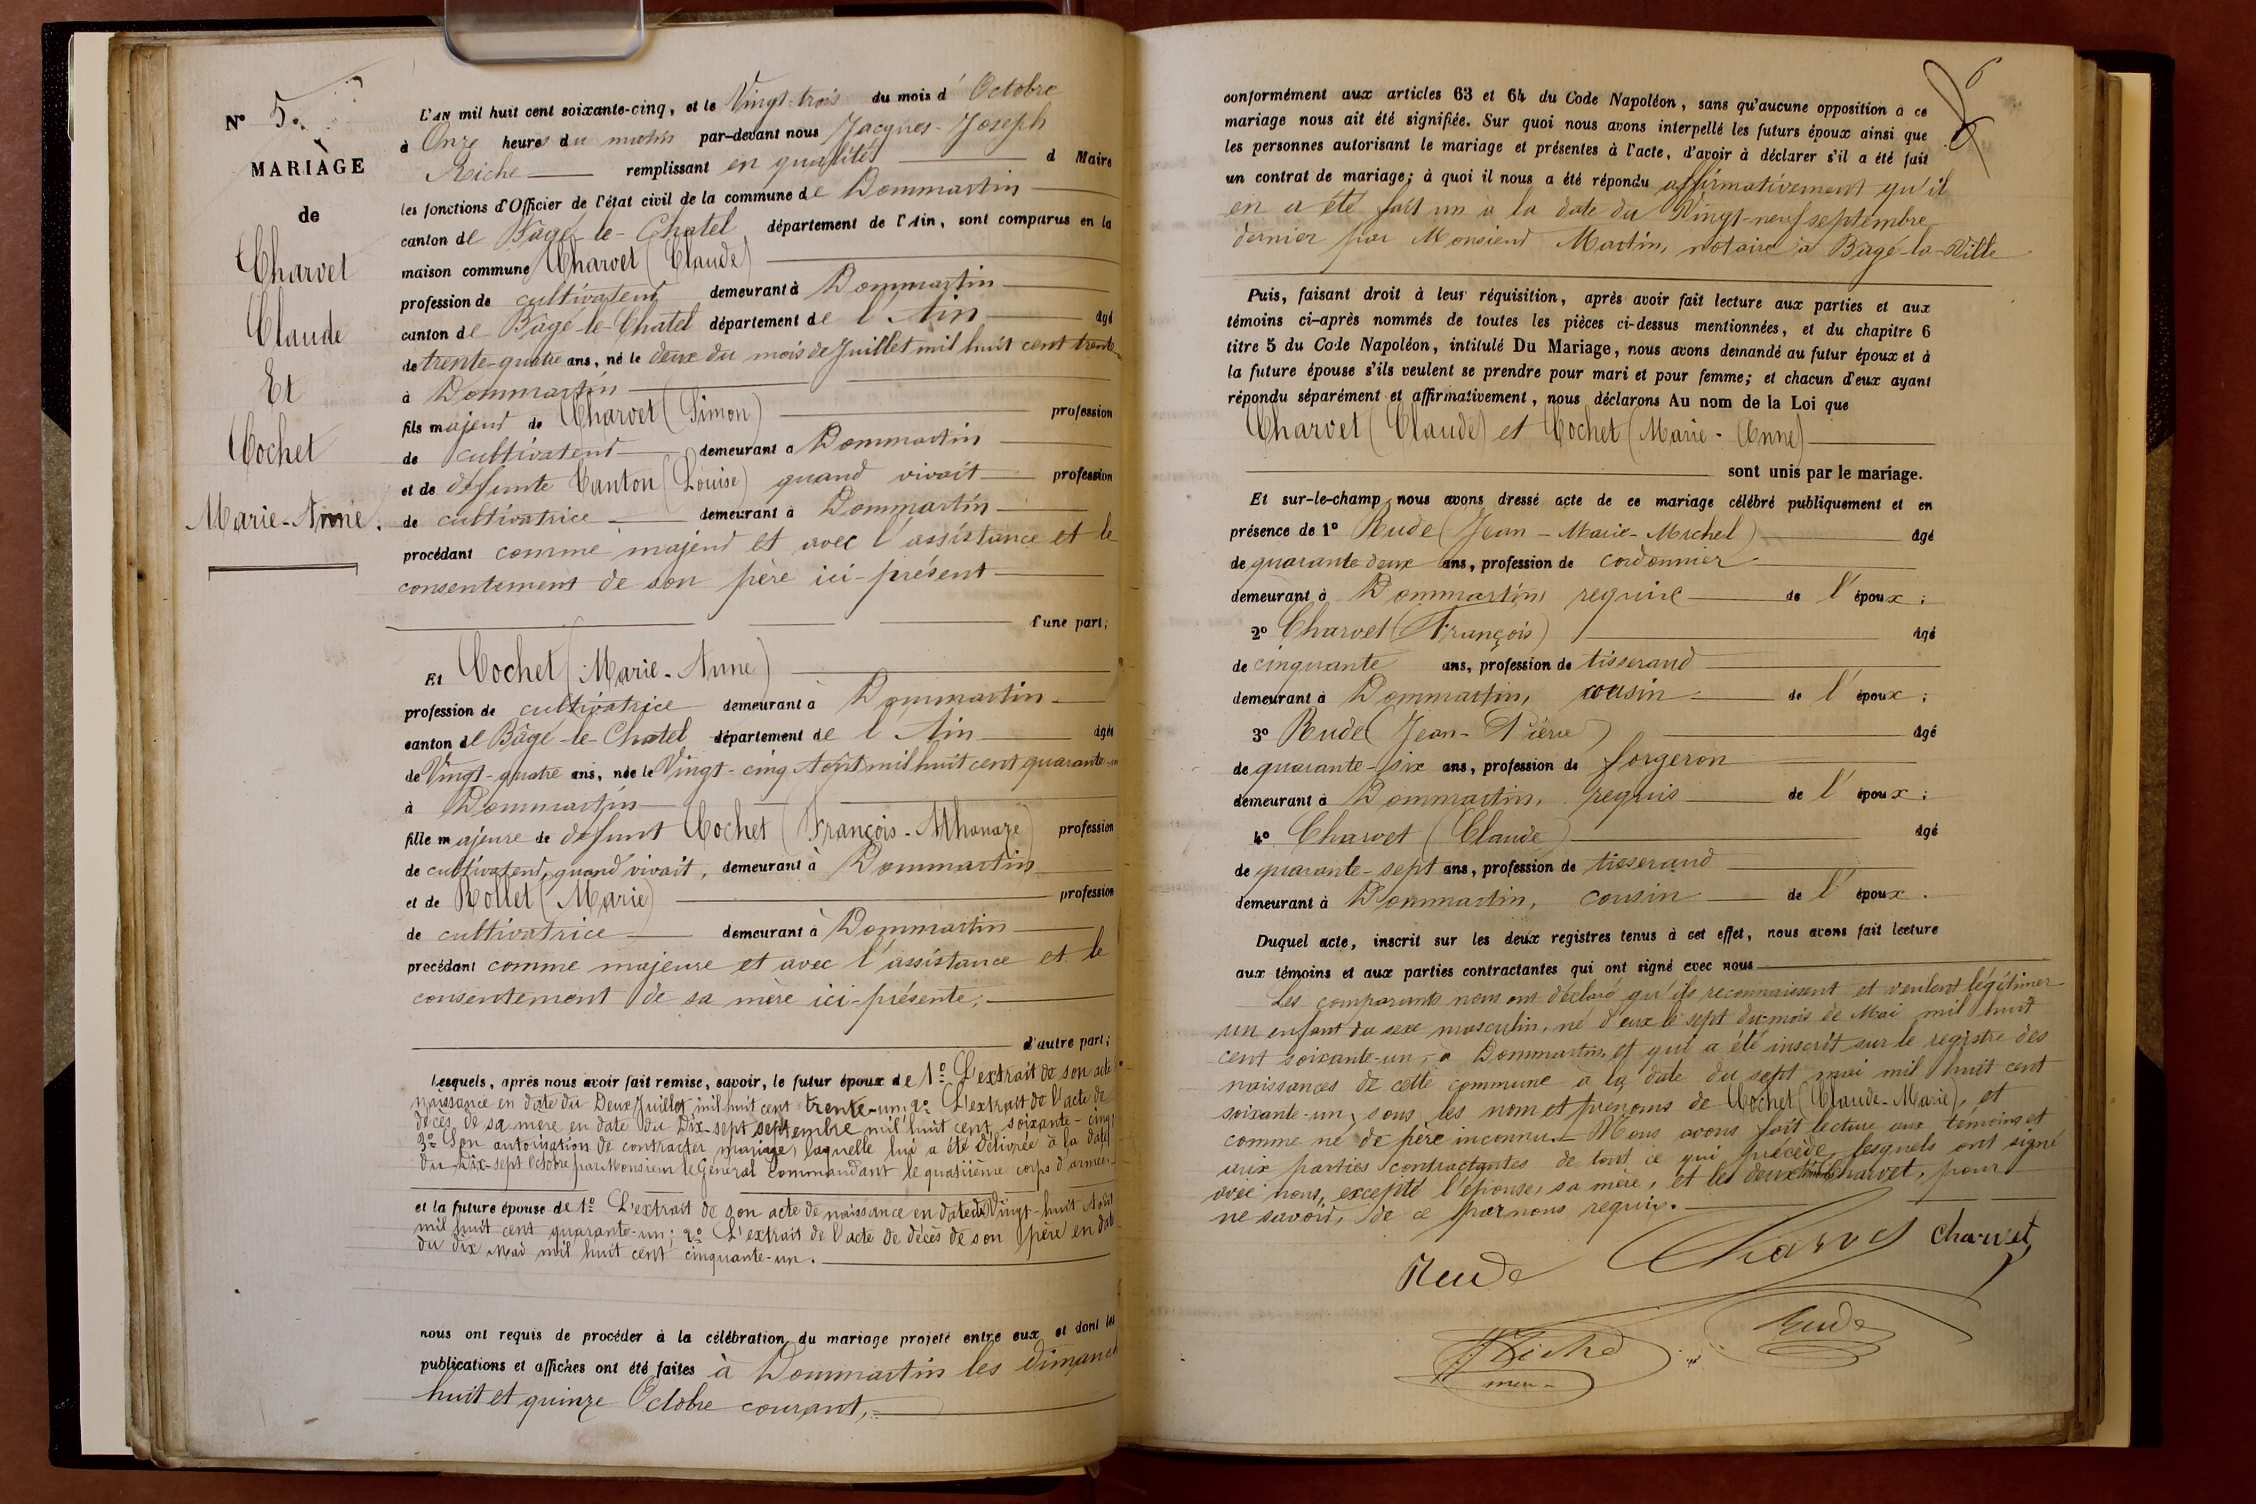 N° 5.
MARIAGE
de
Charvet
Claude
Et
Cochet
Marie-Anne.
L'AN mil huit cent soixante-cinq, et le Vingt-trois du mois d'Octobre
à Onze heures du matin par-devant nous Jacques-Joseph
Riche remplissant en qualité d Maire
les fonctions d'Officier de l'état civil de la commune de Dommartin
canton de Bâgé-le-Chatel département de l'Ain, sont comparus en la
maison commune Charvet (Claude)
profession de cultivateur demeurant à Dommartin
canton de Bâgé-le-Chatel département de l'Ain âgé
de trente-quatre ans, né le deux du mois de Juillet mil huit cent trente-
à Dommartin
fils majeur de Charvet (Simon) profession
de cultivateur demeurant à Dommartin
et de défunte Canton (Louise) quand vivait profession
de cultivatrice demeurant à Dommartin
procédant comme majeur et avec l'assistance et le
consentement de son père ici-présent
d'une part;
Et Cochet (Marie-Anne)
profession de cultivatrice demeurant à Dommartin
canton de Bâgé-le-Chatel département de l'Ain âgée
de Vingt-quatre ans, née le Vingt-cinq Août mil huit cent quarante-un
à Dommartin
fille majeure de défunt Cochet (François-Athanaze) profession
de cultivateur, quand vivait, demeurant à Dommartin
et de Rollet (Marie) profession
de cultivatrice demeurant à Dommartin
procédant comme majeure et avec l'assistance et le
consentement de sa mère ici-présente;
d'autre part;
Lesquels, après nous avoir fait remise, savoir, le futur époux de 1° L'extrait de son acte
naissance en date du Deux Juillet mil huit cent trente-un; 2° L'extrait de l'acte de
décès de sa mère en date du Dix-sept septembre mil huit cent soixante-cinq
3° Son autorisation de contracter mariage, laquelle lui a été délivrée à la date
du Dix-sept Octobre par Monsieur le Général Commandant le quatrième corps d'armée
et la future épouse de 1° L'extrait de son acte de naissance en date du Vingt-huit Août
mil huit cent quarante-un; 2° L'extrait de l'acte de décès de son père en date
du dix Mai mil huit cent cinquante-un.
nous ont requis de procéder à la célébration du mariage projeté entre eux et dont les
publications et affiches ont été faites à Dommartin les Dimanch
huit et quinze Octobre courant,
6
conformément aux articles 63 et 64 du Code Napoléon, sans qu'aucune opposition à ce
mariage nous ait été signifiée. Sur quoi nous avons interpellé les futurs époux ainsi que
les personnes autorisant le mariage et présentes à l'acte, d'avoir à déclarer s'il a été fait
un contrat de mariage; à quoi il nous a été répondu affirmativement qu'il
en a été fait un à la date du Vingt-neuf septembre
dernier par Monsieur Martin, notaire à Bâgé-la-Ville
Puis, faisant droit à leur réquisition, après avoir fait lecture aux parties et aux
témoins ci-après nommés de toutes les pièces ci-dessus mentionnées, et du chapitre 6
titre 5 du Code Napoléon, intitulé Du Mariage, nous avons demandé au futur époux et à
la future épouse s'ils veulent se prendre pour mari et pour femme; et chacun d'eux ayant
répondu séparément et affirmativement, nous déclarons Au nom de la Loi que
Charvet (Claude) et Cochet (Marie-Anne)
sont unis par le mariage.
Et sur-le-champ nous avons dressé acte de ce mariage célébré publiquement et en
présence de 1° Rude (Jean-Marie-Michel) âgé
de quarante deux ans, profession de cordonnier
demeurant à Dommartin, requis de l'époux;
2° Charvet (François) âgé
de cinquante ans, profession de tisserand
demeurant à Dommartin, cousin de l'époux;
3° Rude (Jean-Pierre) âgé
de quarante-six ans, profession de forgeron
demeurant à Dommartin, requis de l'époux;
4° Charvet (Claude) âgé
de quarante-sept ans, profession de tisserand
demeurant à Dommartin, cousin de l'époux.
Duquel acte, inscrit sur les deux registres tenus à cet effet, nous avons fait lecture
aux témoins et aux parties contractantes qui ont signé avec nous
Les comparants nous ont déclaré qu'ils reconnaissent et veulent légitimer
un enfant du sexe masculin, né d'eux le sept du mois de Mai mil huit
cent soixante-un, à Dommartin et qui a été inscrit sur le registre des
naissances de cette commune à la date du sept mai mil huit cent
soixante-un, sous les nom et prénoms de Cochet (Claude-Marie), et
comme né de père inconnu. Nous avons fait lecture aux témoins et
aux parties contractantes de tout ce qui précède, lesquels ont signé
avec nous, excepté l'épouse, sa mère, et les deux Charvet, pour
ne savoir, de ce par nous requis.
Rude Charvet Charvet
J. Riche Rude
maire